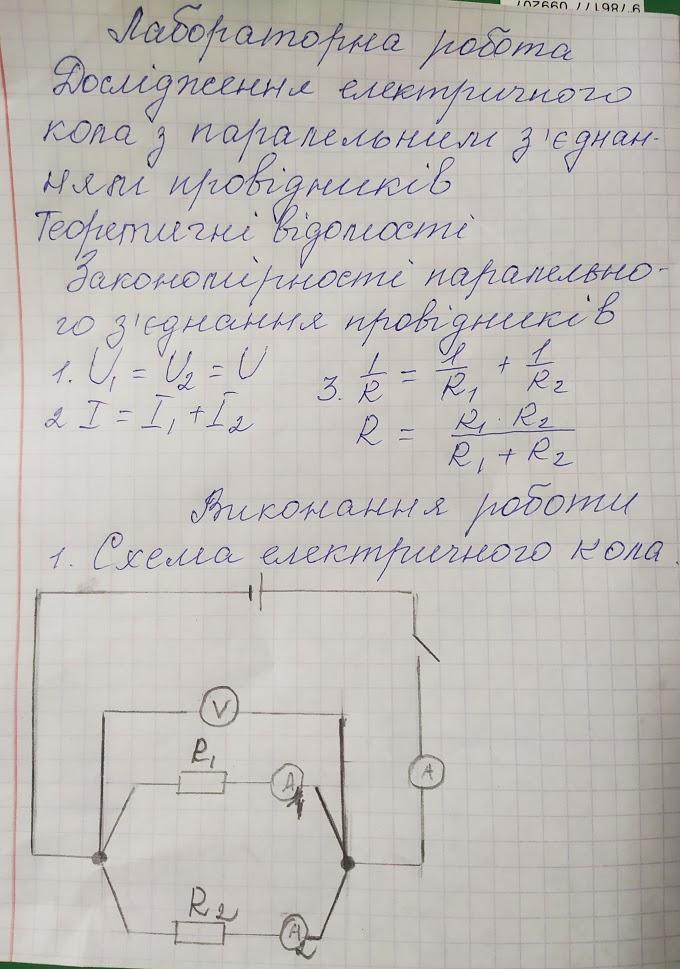 Лабораторна робота
Дослідження електричного
кола з паралельним з'єднан-
ням провідників
Теоретичні відомості
Закономірності паралельно-
го з'єднання провідників
1. U₁ = U₂ = U
2 I = I₁ + I₂
3. 1/R = 1/R₁ + 1/R₂
R = R₁ · R₂ / R₁ + R₂
Виконання роботи
1. Схема електричного кола.
V
R₁
A₁
A
R₂
A₂